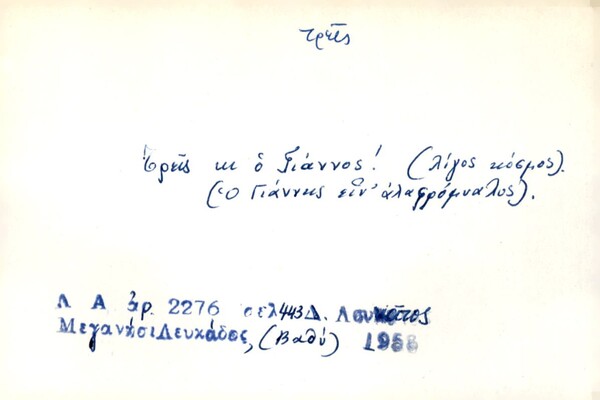 τρεῖς
Ἐρεῖς κι ὁ Γιάννος! (λίγος κόσμος).
(Ὁ Γιάννης εἶν' ἀλαφρόμυαλος).
Λ Α ἀρ. 2276 σελ 443 Δ. Λουκᾶτος
Μεγανήσι Λευκάδος, (Βαθύ) 1958